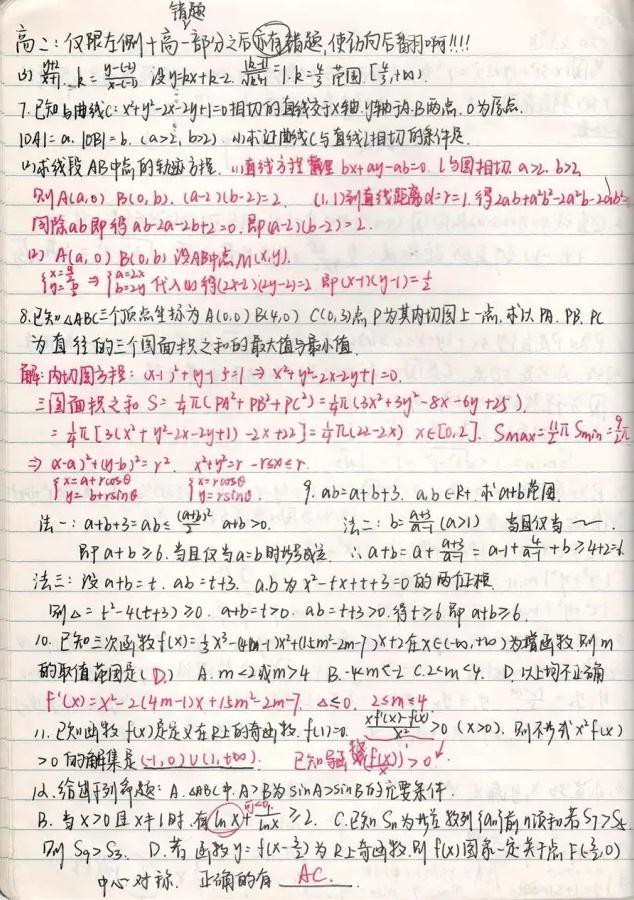 错题
高二：仅限左侧+高一部分之后亦有错题，使劲向后翻啊!!!!
(3) y+2/x+1. k = y-(-2)/x-(-1) 设y=kx+k-2. |k-1|/√k²+1 = 1. k=4/3 范围 [4/3,+∞).
7.已知与曲线C: x²+y²-2x-2y+1=0相切的直线交于x轴.y轴于A.B两点, O为原点.
|OA|=a. |OB|=b. (a>2, b>2). (1)求证曲线C与直线l相切的条件是.
(2)求线段AB中点的轨迹方程. (1)直线方程 bx+ay-ab=0. l与圆相切. a>2. b>2
则A(a,0) B(0,b). (a-2)(b-2)=2. (1,1)到直线距离d=r=1.得2ab+a²b²-2a²b-2ab²=
同除ab即得 ab-2a-2b+2=0.即(a-2)(b-2)=2.
(2) A(a,0) B(0,b) 设AB中点M(x,y).
{x=a/2 y=b/2 ⇒ {a=2x b=2y 代入(1)得(2x-2)(2y-2)=2 即(x-1)(y-1)=1/2
8.已知△ABC三个顶点坐标为A(0,0) B(4,0) C(0,3)点P为其内切圆上一点,求以PA.PB.PC
为直径的三个圆面积之和的最大值与最小值.
解:内切圆方程: (x-1)²+(y-1)²=1 ⇒ x²+y²-2x-2y+1=0.
三圆面积之和 S=1/4π(PA²+PB²+PC²)=1/4π(3x²+3y²-8x-6y+25).
=1/4π[3(x²+y²-2x-2y+1)-2x+22]=1/4π(22-2x) x∈[0,2]. Smax=11/2π Smin=9/2π
⇒ (x-a)²+(y-b)²=r². x²+y²=r -r≤x≤r.
{x=a+rcosθ y=b+rsinθ. {x=rcosθ y=rsinθ. 9. ab=a+b+3. a,b∈R+.求a+b范围.
法一: a+b+3=ab≤(a+b)²/4 a+b>0. 法二: b=a+3/a-1(a>1) 当且仅当
即a+b≥6.当且仅当a=b时等号成立. ∴a+b=a+a+3/a-1=a-1+4/a-1+b≥4+2=6.
法三:设a+b=t. ab=t+3. a.b为x²-tx+t+3=0的两个根.
则△=t²-4(t+3)≥0. a+b=t>0. ab=t+3>0.得t≥6即a+b≥6.
10.已知三次函数f(x)=1/3x³-(4m-1)x²+(15m²-2m-7)x+2在x∈(-∞,+∞)为增函数则m
的取值范围是(D.) A. m<2或m>4 B.-4<m<-2 C.2<m<4. D.以上均不正确
f'(x)=x²-2(4m-1)x+15m²-2m-7. △≤0. 2≤m≤4
11.已知函数f(x)是定义在R上的奇函数. f(1)=0. xf'(x)-f(x)/x²>0 (x>0). 则不等式x²f(x)
>0的解集是(-1,0)∪(1,+∞). 已知导函数(f(x)/x)'>0
12.给出下列命题: A.△ABC中.A>B为sinA>sinB的充要条件.
B.当x>0且x≠1时.有lnx+1/lnx≥2. 可<0. C.已知Sn为等差数列{an}前n项和若S7>S5
则S9>S3. D.若函数y=f(x-3/2)为R上奇函数.则f(x)图象一定关于点F(3/2,0)
中心对称. 正确的有 AC.